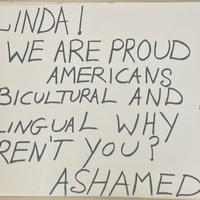 LINDA!
WE ARE PROUD
AMERICANS
BICULTURAL AND
LINGUAL WHY
REN'T YOU?
ASHAMED